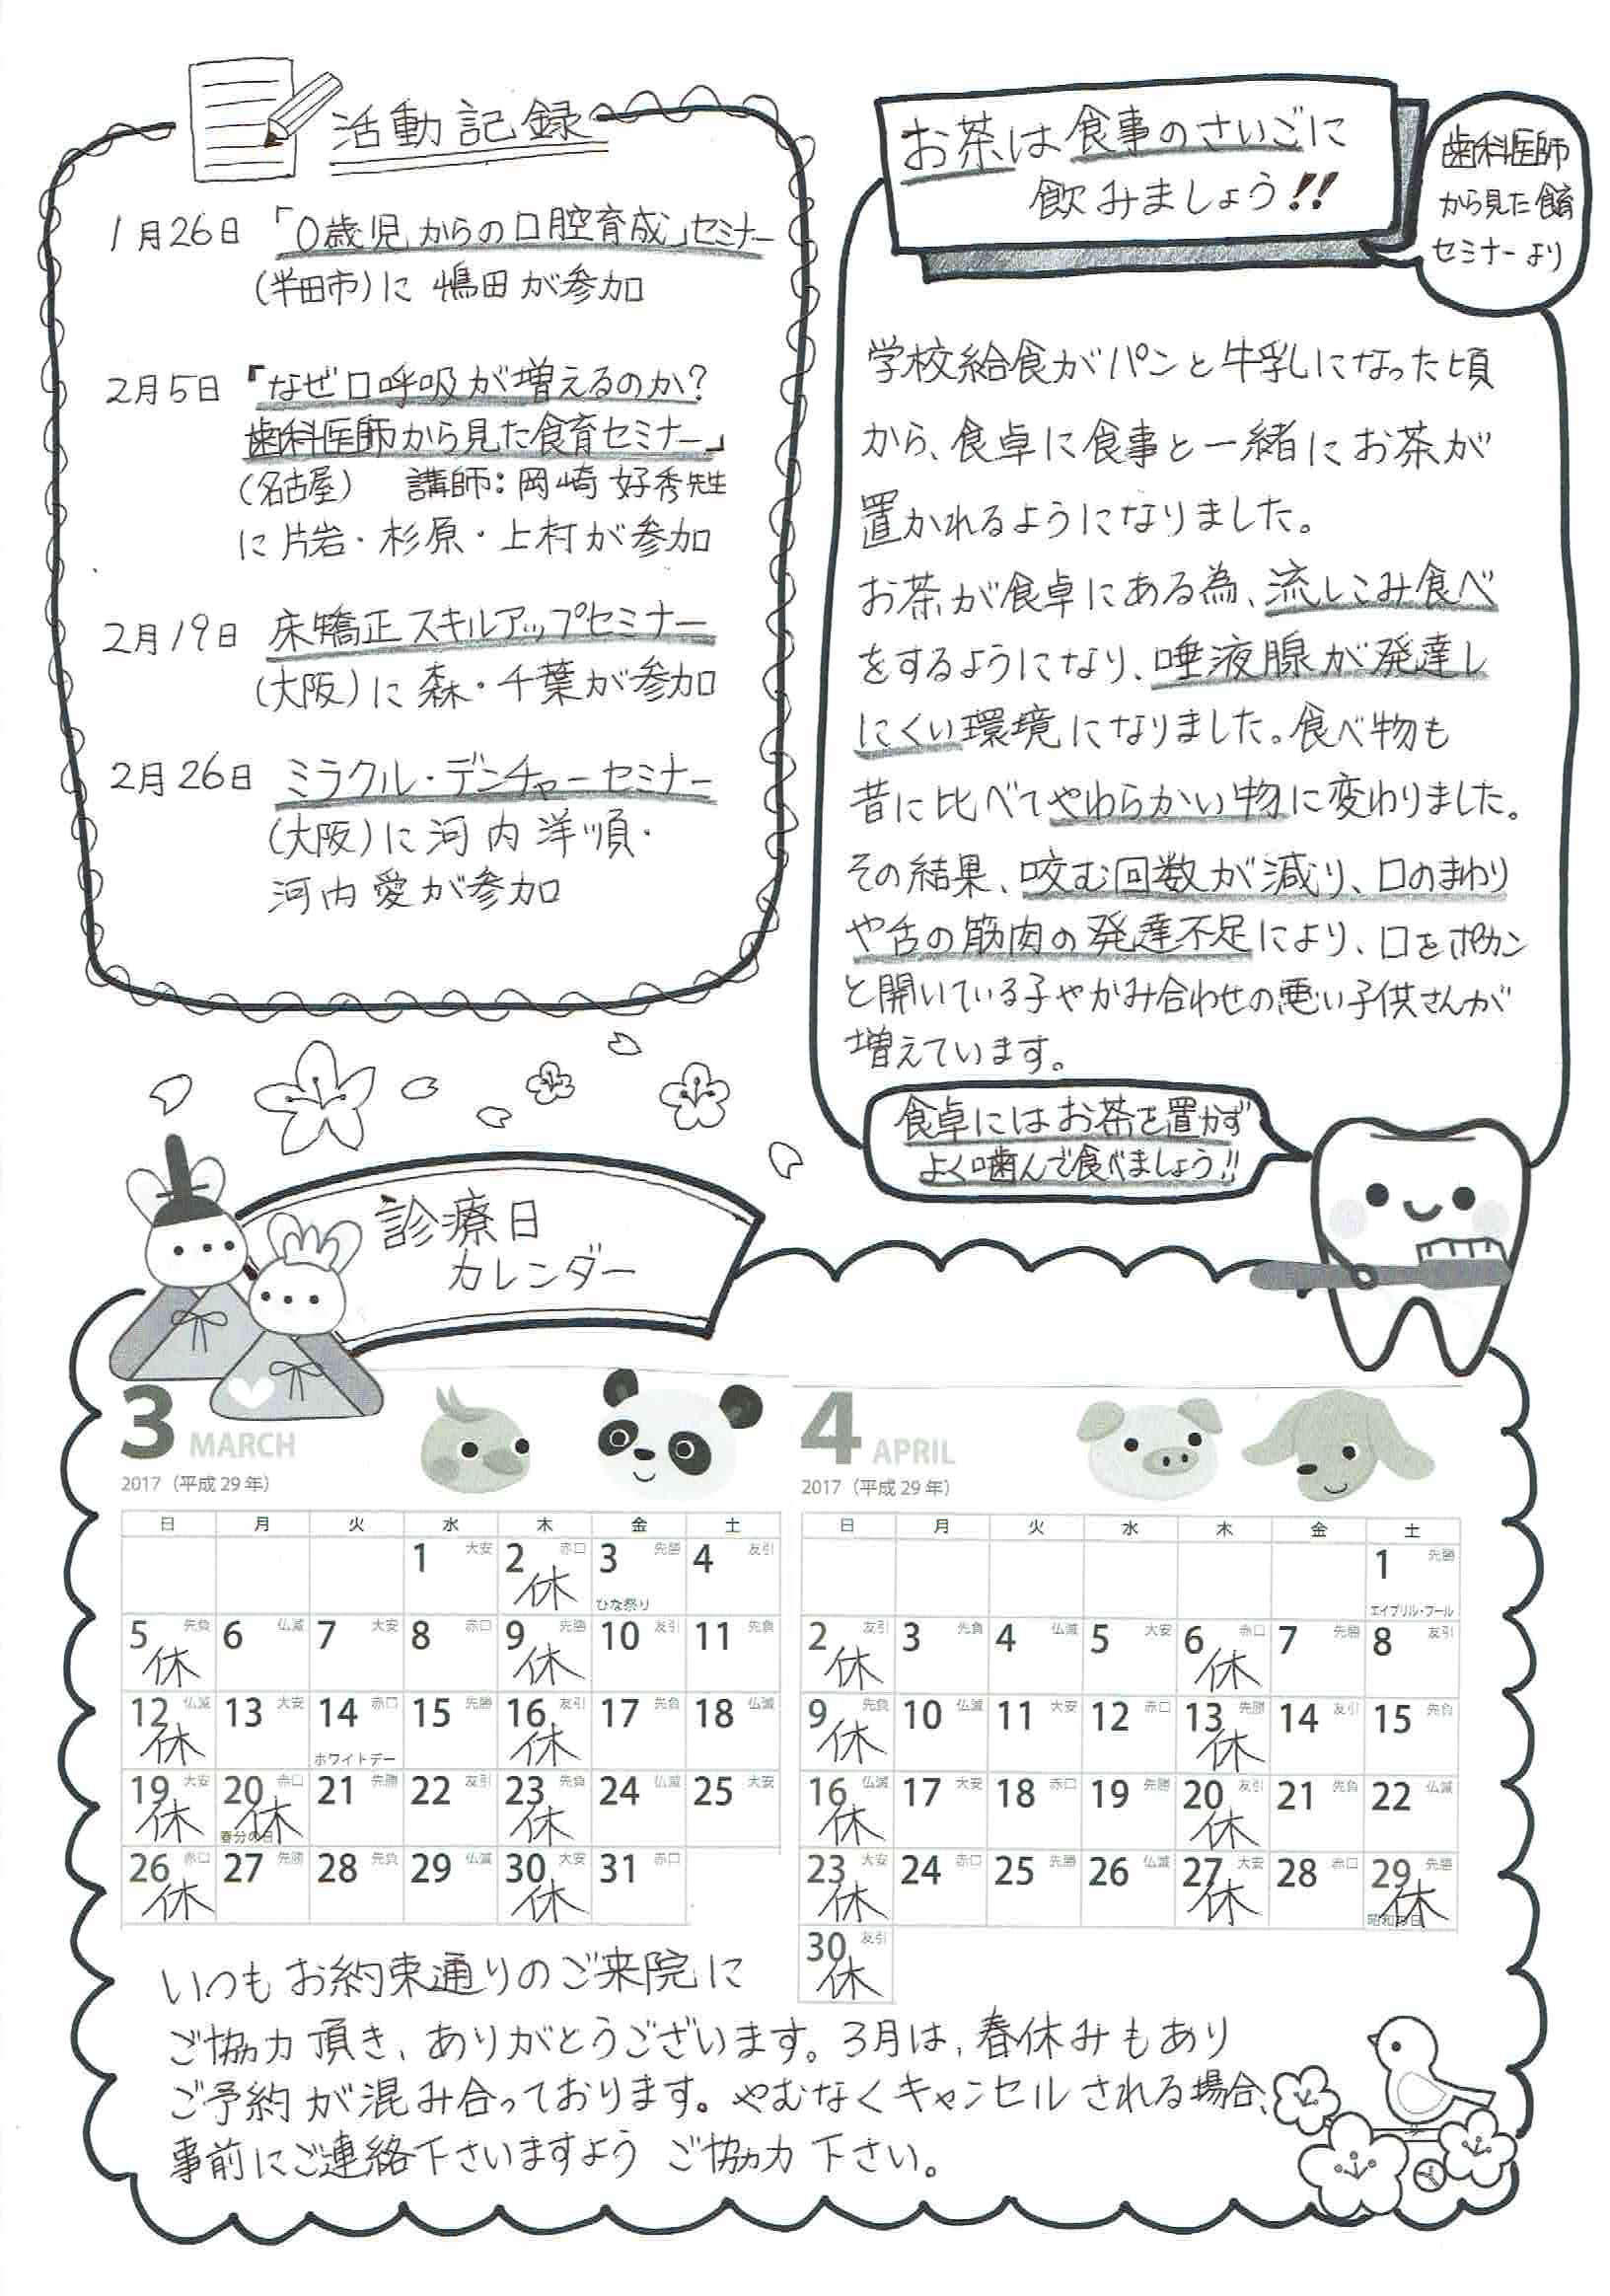 活動記録
1月26日 「0歳児からの口腔育成」セミナー
(半田市)に 嶋田が参加
2月5日 『なぜ口呼吸が増えるのか?
歯科医師から見た食育セミナー』
(名古屋) 講師:岡崎 好秀先生
に片岩・杉原・上村が参加
2月19日 床矯正スキルアップセミナー
(大阪)に 森・千葉が参加
2月26日 ミラクル・デンチャーセミナー
(大阪)に河内洋順・
河内愛が参加
お茶は食事のさいごに
飲みましょう!!
歯科医師
から見た食育
セミナーより
学校給食がパンと牛乳になった頃
から、食卓に食事と一緒にお茶が
置かれるようになりました。
お茶が食卓にある為、流しこみ食べ
をするようになり、唾液腺が発達し
にくい環境になりました。食べ物も
昔に比べてやわらかい物に変わりました。
その結果、咬む回数が減り、口のまわり
や舌の筋肉の発達不足により、口をポカン
と開いている子やかみ合わせの悪い子供さんが
増えています。
食卓にはお茶を置かず
よく噛んで食べましょう!!
診療日
カレンダー
3 MARCH
2017(平成29年)
日 月 火 水 木 金 土
1 大安 2 赤口 休 3 先勝 ひな祭り 4 友引
5 先負 休 6 仏滅 7 大安 8 赤口 9 先勝 休 10 友引 11 先負
12 仏滅 休 13 大安 14 赤口 ホワイトデー 15 先勝 16 友引 休 17 先負 18 仏滅
19 大安 休 20 赤口 春分の日 休 21 先勝 22 友引 23 先負 休 24 仏滅 25 大安
26 赤口 休 27 先勝 28 先負 29 仏滅 30 大安 休 31 赤口
4 APRIL
2017(平成29年)
日 月 火 水 木 金 土
1 先勝 エイプリル・フール
2 友引 休 3 先負 4 仏滅 5 大安 6 赤口 休 7 先勝 8 友引
9 先負 休 10 仏滅 11 大安 12 赤口 13 先勝 休 14 友引 15 先負
16 仏滅 休 17 大安 18 赤口 19 先勝 20 友引 休 21 先負 22 仏滅
23 大安 休 24 赤口 25 先勝 26 仏滅 27 大安 休 28 赤口 29 先勝 昭和の日 休
30 友引 休
いつもお約束通りのご来院に
ご協力頂き、ありがとうございます。3月は、春休みもあり
ご予約が混み合っております。やむなくキャンセルされる場合、
事前にご連絡下さいますよう ご協力下さい。